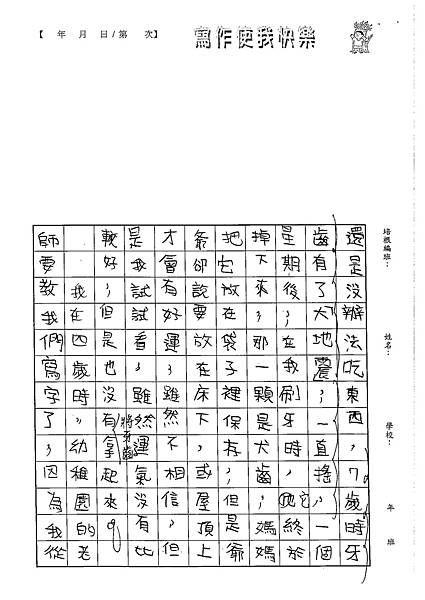 【 年 月 日/第 次】
寫作使我快樂
培根編班：
姓名：
學校：
年 班
還是沒辦法吃東西，7歲時牙
齒有了大地震，一直搖，一個
星期後，我刷牙時，它終於
掉下來，那一顆是犬齒，媽媽
把它放在袋子裡保存，但是爺
爺卻說要放在床下或屋頂上
才會有好運，雖然不相信，但
是我試試看，雖然運氣沒有比
較好，但是也沒有將牙齒拿起來。
我在四歲時，幼稚園的老
師要教我們寫字了，因為我從